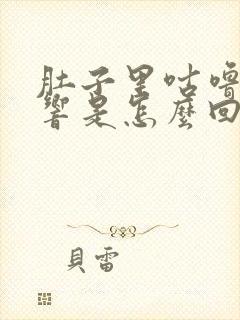 肚子里咕噜
響是怎麼回
貝雷